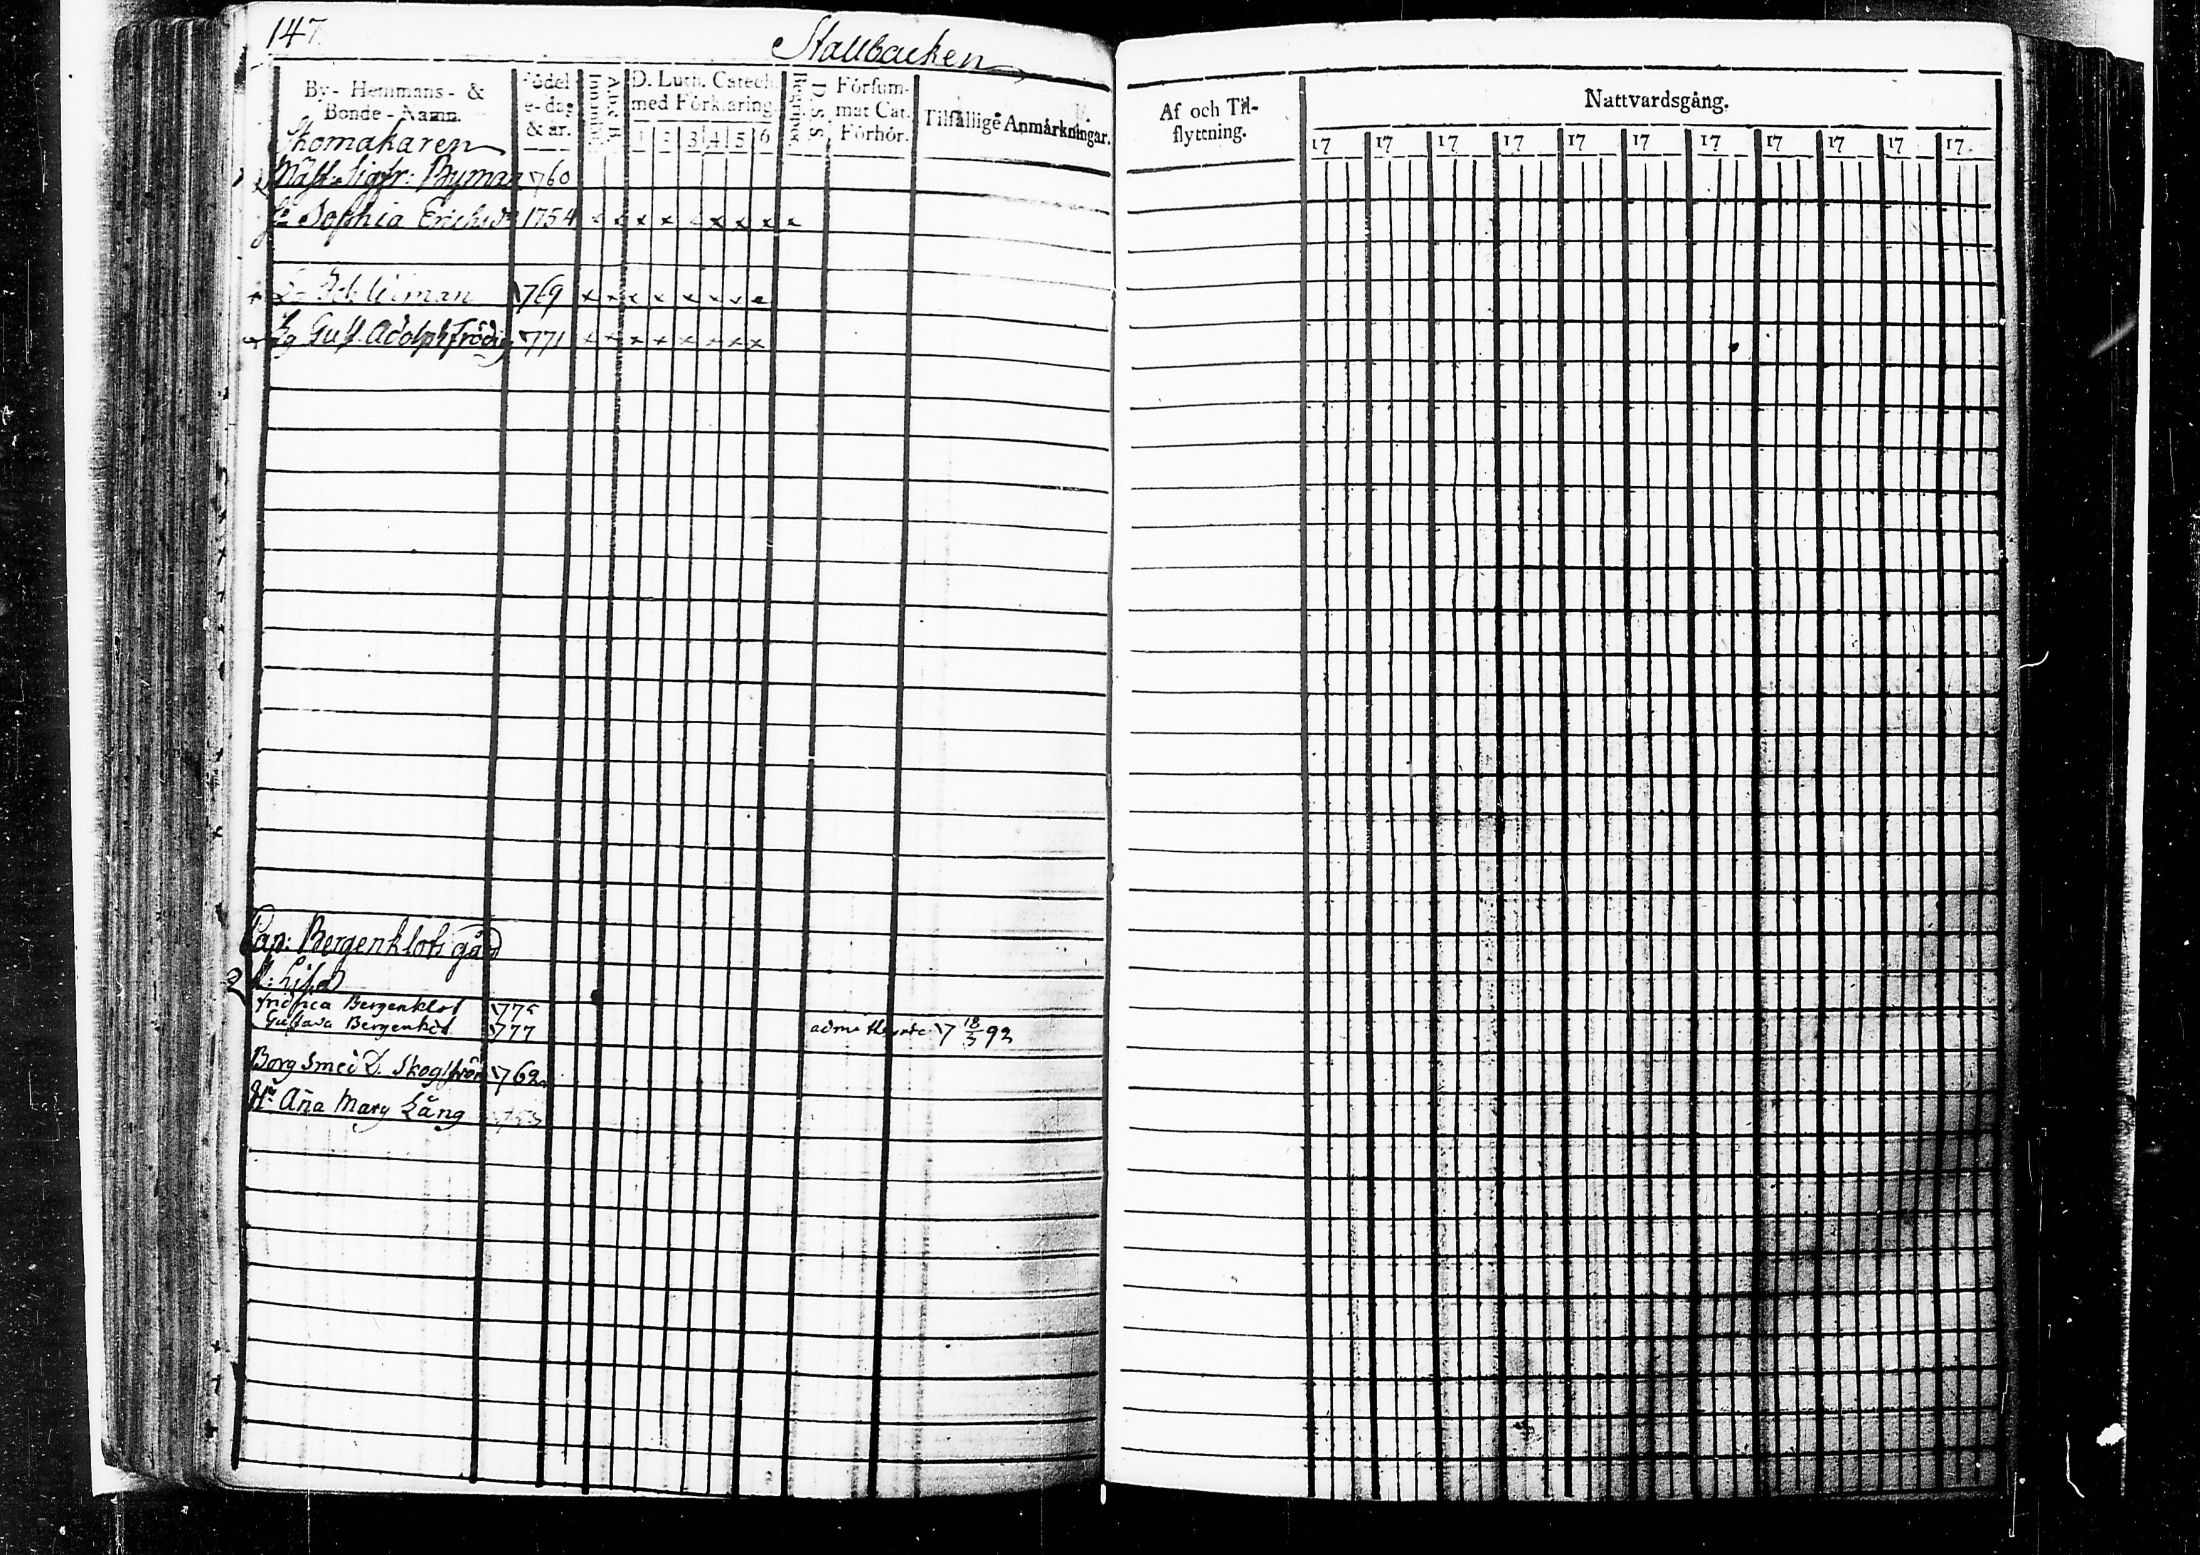 147.
Stallbacken
By- Hemmans- &
Bonde-Namn.
Födel
se-dag
& år.
A.b.c. B.
D. Luth. Catech.
med Förklaring.
1 2 3 4 5 6
D. S. S.
Försum-
mat Cat.
Förhör.
Tilfällige Anmärkningar.
Skomakaren
Mäst. Sigfr: Ryman 760
H. Sophia Ericksdr 1754 x x x x x x x x x
769 x x x x x x x
Lg Gust. Adolph Frödig 771 x x x x x x x x
Cap: Bergenklots gård
Fridrica Bergenklot 177
Gustava Bergenklot 1777 17 18/3 92
Borgsmed D. Skogström 1762
Hu Aña Mary Lång
Af och Til-
flyttning.
Nattvardsgång.
17 17 17 17 17 17 17 17 17 17 17